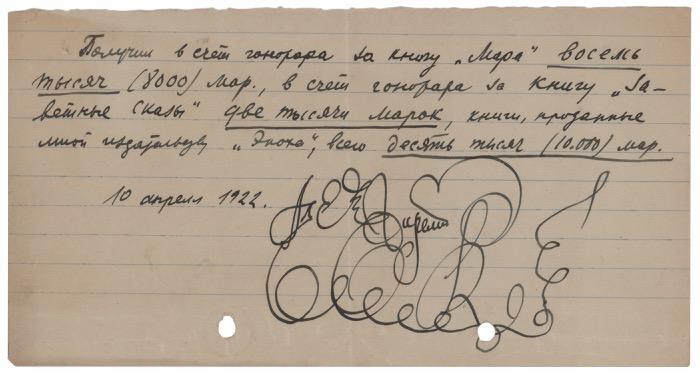 Получил в счёт гонорара за книгу „Мара“ восемь
тысяч (8000) мар., в счёт гонорара за книгу „За-
ветные сказы“ две тысячи марок, книги, проданные
мной издательству „Эпоха“, всего десять тысяч (10.000) мар.
10 апреля 1922.
Алексей Ремизов